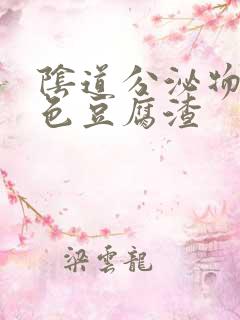 陰道分泌物
色豆腐渣
梁雲龍